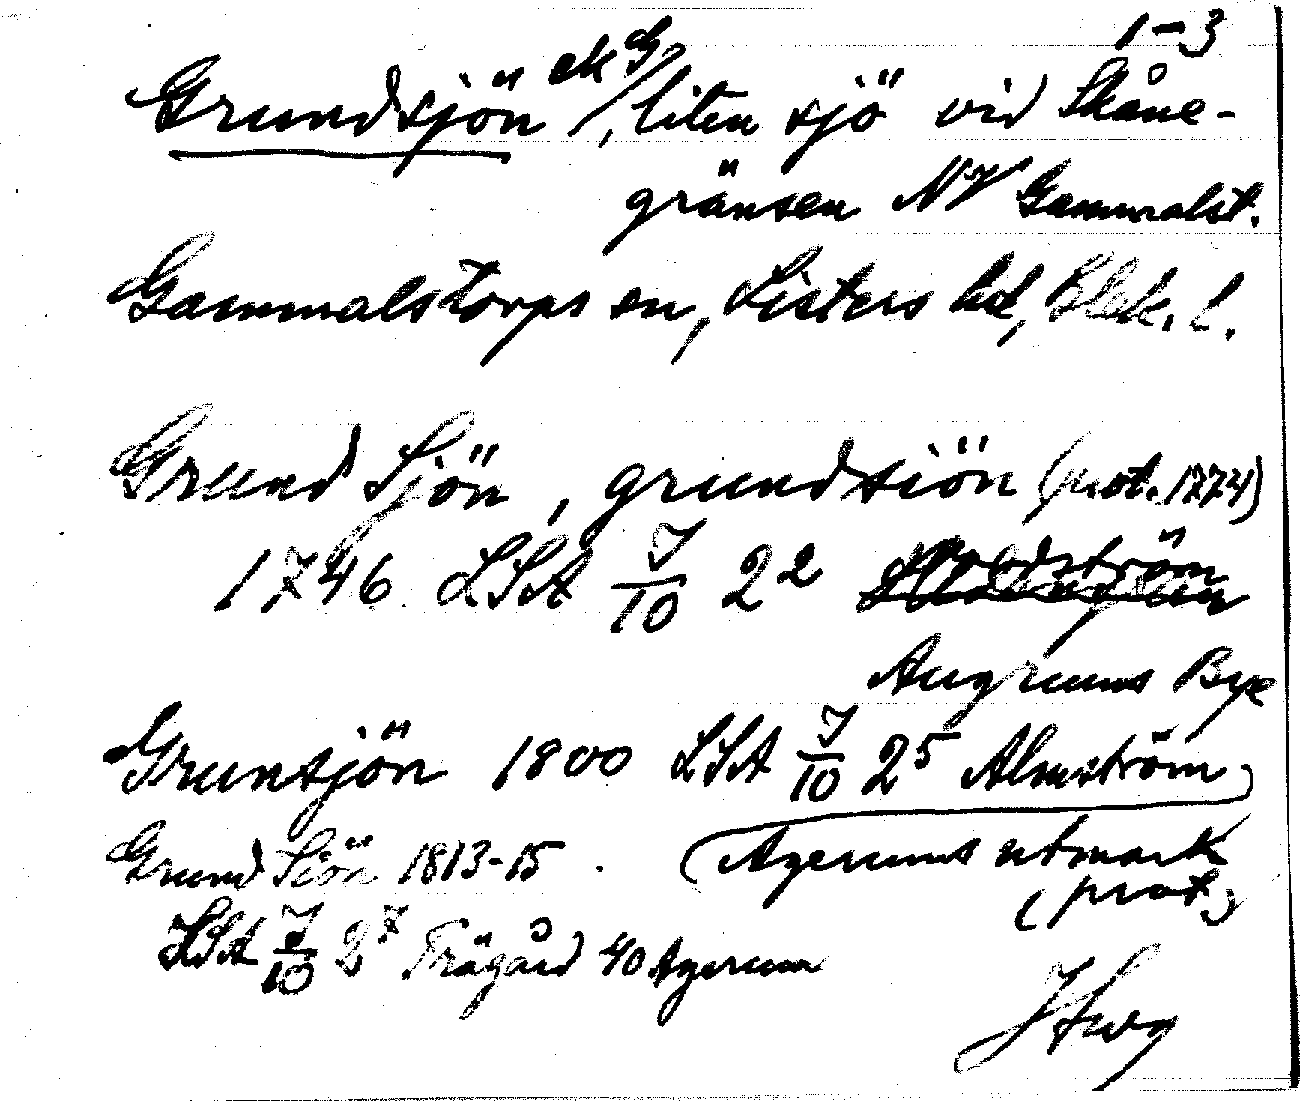 1-3
Grundsjön ek G/, liten sjö vid Skåne-
gränsen NV Gammalst.
Gammalstorps sn, Listers hd, Blek. l.
Grund Sjön, grundsiön (prot. 1774)
1746 LSA I/10 2²
Augrums Bye
Grunsjön 1800 LSA I/10 2⁵ Almström
(Agerums utmark
(prot.)
Grund Siön 1813-15.
LSA I/10 2⁷ Trägård 40 Agerum